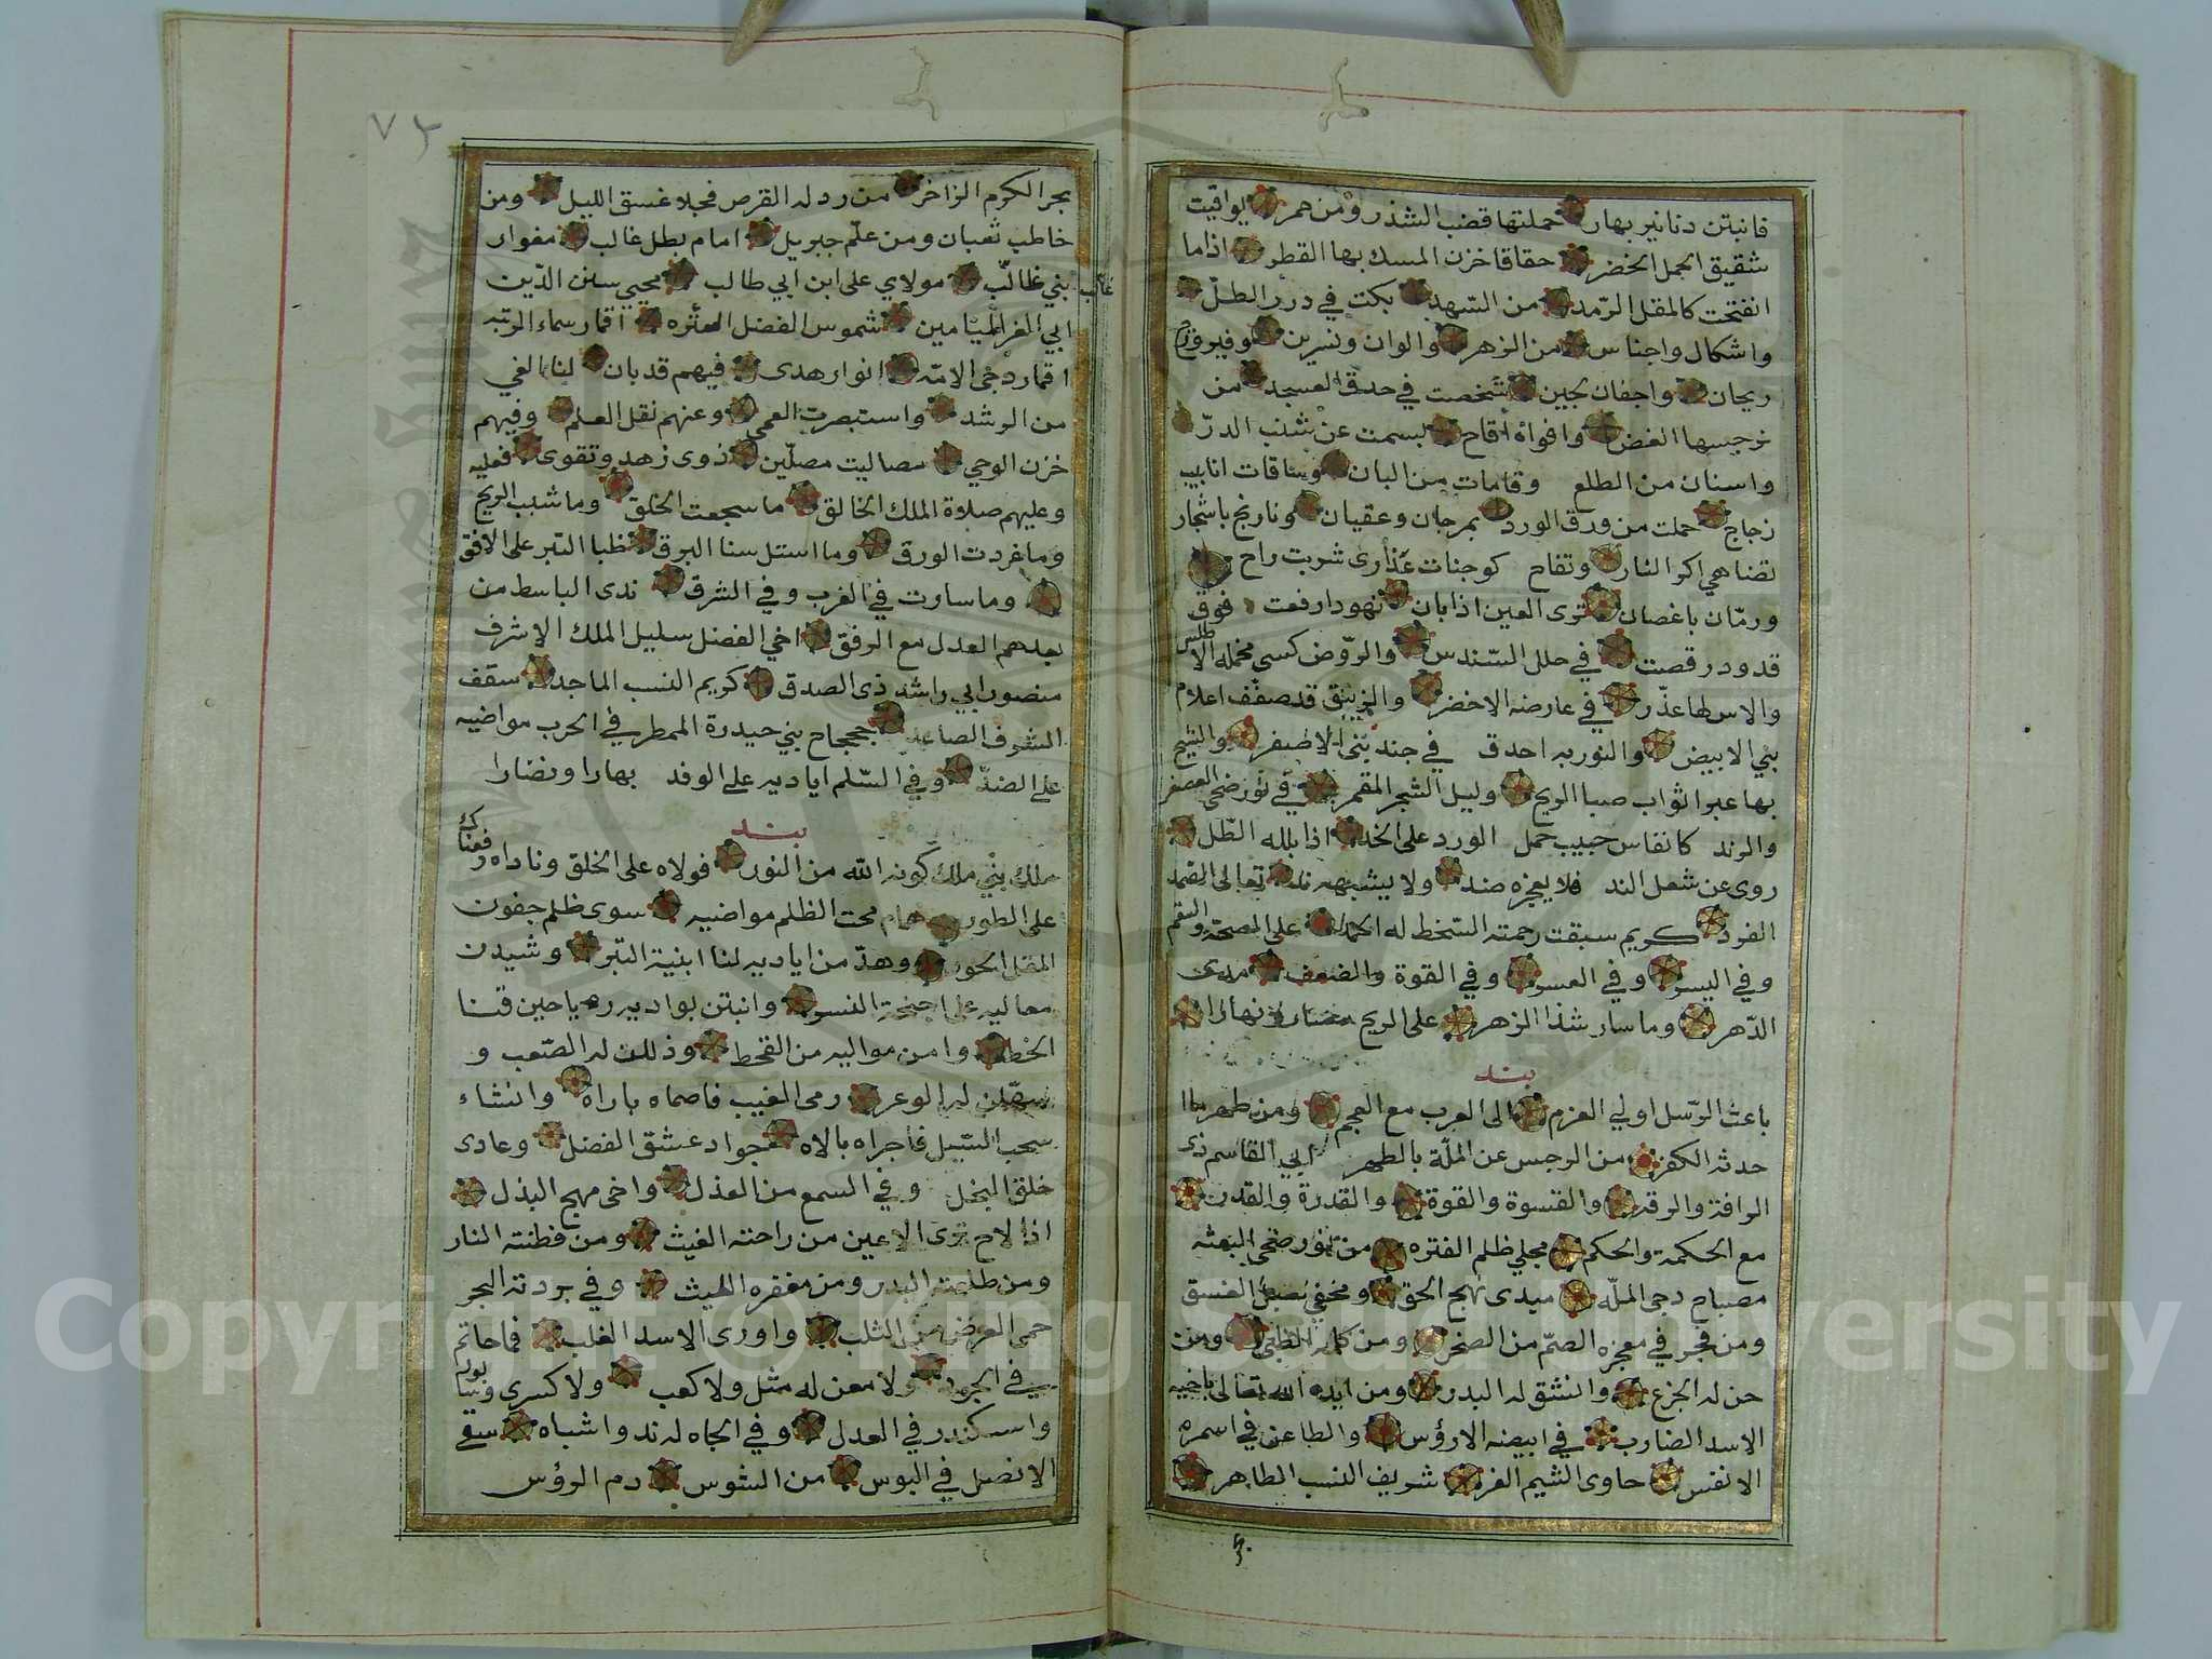 فانبتن دنانير بهار حملتها قضب الشذر ومن همر يواقيت
شقيق الجمل الخضر حقاقا خزن المسك بها القطر اذاما
انفتحت كالمقل الرمد من السهد بكت في درر الطلّ
واشكال واجناس من الزهر والوان ونسرين وفيروزج
ريحان واجفان لجين شخصت في حدق العسجد من
نرجسها الغض وافواه اقاح بسمت عن شنب الدرّ
واسنان من الطلع وقامات من البان وساقات انابيب
زجاج حملت من ورق الورد بمرجان وعقيان ونارنج باشجار
تضاهي اكر النار وتفاح كوجنات عذارى شربت راح
ورمّان باغصان ترى العين اذا بان نهودا رفعت فوق
قدود رقصت في حلل السندس والروض كسي مخمله الاطلس
والاس لها عذّر في عارضه الاخضر والزنبق قد صفف اعلام
بني الابيض والنور به احدق في جند بني الاصفر والشيح
بها عبر اثواب صبا الريح وليل الشجر المقمر في نور ضحى العصفر
والرند كانفاس حبيب حمل الورد على الخد اذا بلله الطّل
روى عن شعل الند فلا يعجزه ضد ولا يشبهه ند تعالى الصمد
الفرد كريم سبقت رحمته السخط له الحمد على الصحة والسقم
وفي اليسر وفي العسر وفي القوة والضعف مدى
الدّهر وما سار شذا الزهر على الريح ونهارا
بند
باعث الرّسل اولي العزم الى العرب مع العجم ومن طهر بالا
حدثه الكفر من الرجس عن الملّة بالطهر ابي القاسم ذى
الرافة والرقة والقسوة والقوة والقدرة والقدر
مع الحكمة والحكم مجلي ظلم الفتره من نور ضحى البعثه
مصباح دجى الملّه مبدى نهج الحق ومخفي الغسق
ومن فجر في معجزه الصمّ من الصخر ومن كلمه الظبي ومن
حن له الجزع وانشق له البدر ومن ايده الله تعالى باخيه
الاسد الضارب في ابيضه الارؤس والطاعن في اسمره
الانفس حاوى الشيم الغر شريف النسب الطاهر
٧٢
بحر الكرم الزاخر من رد له القرص فجلا غسق الليل ومن
خاطب ثعبان ومن علّم جبريل امام بطل غالب مغوار
بني غالب مولاي على ابن ابي طالب محيي سنن الدّين
غالب
ابي الغر الميامين شموس الفضل العثره اقمار سماء الرتبه
اقمار دجى الامّه انوار هدى فيهم قد بان لنا الغي
من الرشد واستبصرت العمي وعنهم نقل العلم وفيهم
خزن الوحي مصاليت مصلّين ذوى زهد وتقوى فعليه
وعليهم صلاة الملك الخالق ما سجعت الخلق وما شبب الريح
وما غردت الورق وما استل سنا البرق ظبا التبر على الافق
وما سارت في الغرب وفي الشرق ندى الباسط من
بعدهم العدل مع الرفق اخي الفضل سليل الملك الاشرف
منصور ابي راشد ذى الصدق كريم النسب الماجد سقف
الشرف الصاعد جحجاح بني حيدرة الممطر في الحرب مواضيه
على الضدّ وفي السّلم اياديه على الوفد بهارا ونضارا
بند
ملك بنّي ملك كونه الله من النور فولاه على الخلق وناداه رفعناك
على الطور همام محت الظلم مواضيه سوى ظلم جفون
المقل الحور وهدّ من اياديه لنا ابنية التبر وشيدن
معاليه على اجنحة النسر وانبتن بواديه رياحين قنا
الخط وامن مواليه من القحط وذللن له الصّعب و
سهّلن له الوعر رمى الغيب فاصماه باراه وانشاء
سحب السّيل فاجراه بالاه جواد عشق الفضل وعادى
خلق البخل وفي السمع من العذل واخى مهج البذل
اذا لاح ترى الاعين من راحته الغيث ومن فطنته النار
ومن طلعته البدر ومن مغفره الليث وفي بردته البحر
حمى العرض من الثلب واورى الاسد الغلب فما حاتم
في الجود ولا معن له مثل ولا كعب ولا كسرى وسابور
واسكندر في العدل وفي الجاه له ند واشباه سقى
الانصل في البوس من الشوس دم الرؤس
Copyright © King Saud University